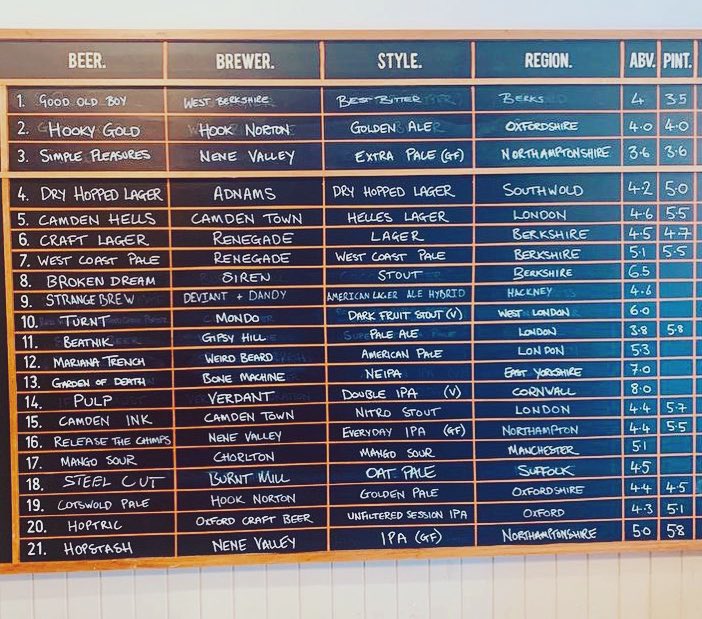 BEER. BREWER. STYLE. REGION. ABV. PINT.
1. GOOD OLD BOY WEST BERKSHIRE BEST BITTER BERKS 4 3.5
2. HOOKY GOLD HOOK NORTON GOLDEN ALE OXFORDSHIRE 4.0 4.0
3. SIMPLE PLEASURES NENE VALLEY EXTRA PALE (GF) NORTHAMPTONSHIRE 3.6 3.6
4. DRY HOPPED LAGER ADNAMS DRY HOPPED LAGER SOUTHWOLD 4.2 5.0
5. CAMDEN HELLS CAMDEN TOWN HELLES LAGER LONDON 4.6 5.5
6. CRAFT LAGER RENEGADE LAGER BERKSHIRE 4.5 4.7
7. WEST COAST PALE RENEGADE WEST COAST PALE BERKSHIRE 5.1 5.5
8. BROKEN DREAM SIREN STOUT BERKSHIRE 6.5
9. STRANGE BREW DEVIANT + DANDY AMERICAN LAGER ALE HYBRID HACKNEY 4.6
10. TURNT MONDO DARK FRUIT STOUT (V) WEST LONDON 6.0
11. BEATNIK GIPSY HILL PALE ALE LONDON 3.8 5.8
12. MARIANA TRENCH WEIRD BEARD AMERICAN PALE LONDON 5.3
13. GARDEN OF DEATH BONE MACHINE NEIPA EAST YORKSHIRE 7.0
14. PULP VERDANT DOUBLE IPA (V) CORNWALL 8.0
15. CAMDEN INK CAMDEN TOWN NITRO STOUT LONDON 4.4 5.7
16. RELEASE THE CHIMPS NENE VALLEY EVERYDAY IPA (GF) NORTHAMPTON 4.4 5.5
17. MANGO SOUR CHORLTON MANGO SOUR MANCHESTER 5.1
18. STEEL CUT BURNT MILL OAT PALE SUFFOLK 4.5
19. COTSWOLD PALE HOOK NORTON GOLDEN PALE OXFORDSHIRE 4.4 4.5
20. HOPTRIC OXFORD CRAFT BEER UNFILTERED SESSION IPA OXFORD 4.3 5.1
21. HOPSTASH NENE VALLEY IPA (GF) NORTHAMPTONSHIRE 5.0 5.8